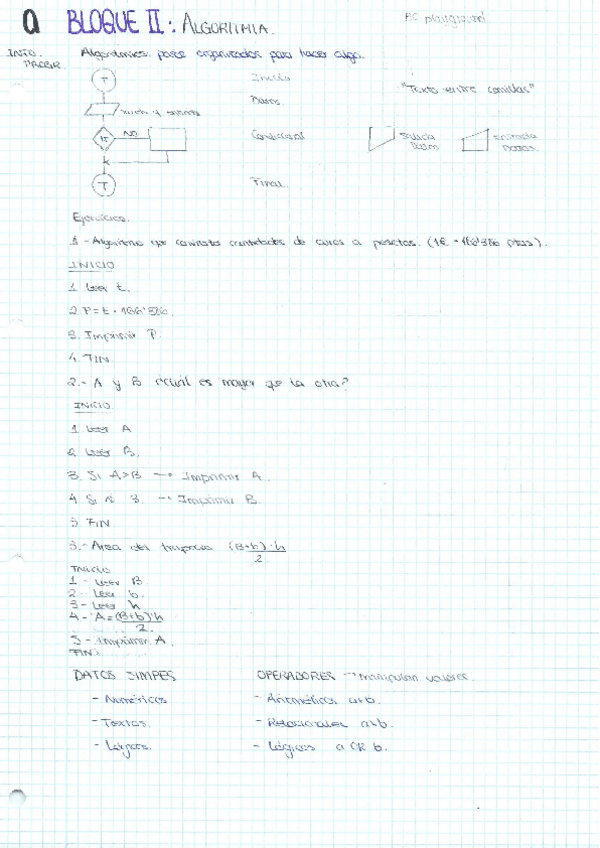 BLOQUE II: ALGORITMIA.
BC playground
INTO.
PROGR.
Algoritmos: pasos organizados para hacer algo.
Inicio
"Texto entre comillas"
Datos
NO
Condicional
Salida
Datos
Entrada
Datos.
T
Final.
Ejercicios.
1 - Algoritmo que convierta cantidades de euros a pesetas. (1€ = 166'386 ptas).
INICIO
1. Leer €.
2. P = € · 166'386.
3. Imprimir P.
4. FIN
2.- A y B ¿cuál es mayor que la otra?
INICIO
1. Leer A
2. Leer B.
3. Si A>B → Imprimir A.
4. Si 3. → Imprimir B.
5. FIN
3.- Área del trapecio (B+b)·h
2
Inicio
1 - Leer B.
2 - Leer b.
3 - Leer h
4 - A = (B+b)·h
2.
5 - Imprimir A.
FIN.
DATOS SIMPES OPERADORES → manipulan valores.
- Numéricos - Aritméticos a+b.
- Textos. - Relacionales a>b.
- Lógicos. - Lógicos a OR b.